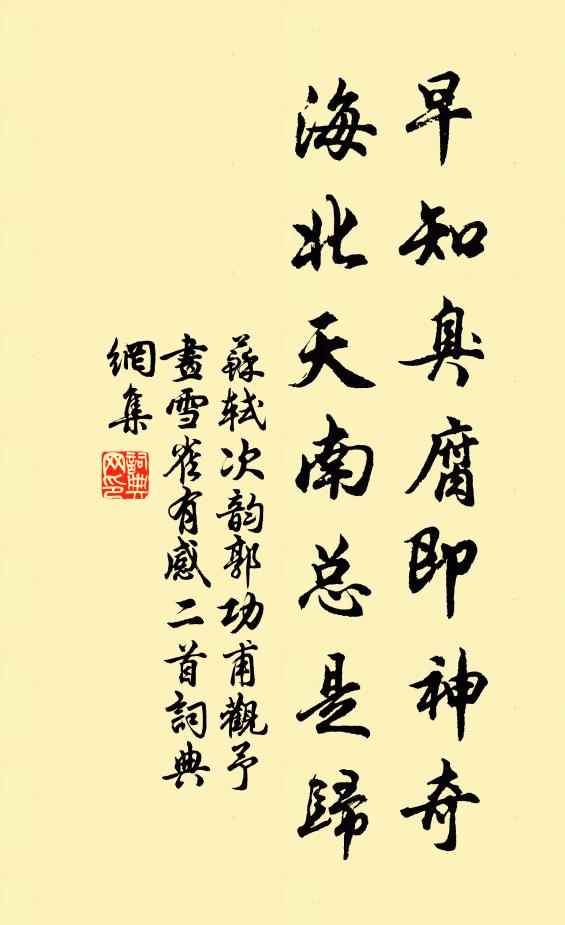 早知臭腐即神奇
海北天南总是歸
蘇軾次韵郭功甫觀予
畫雪雀有感二首詞典
網集
詞典網印